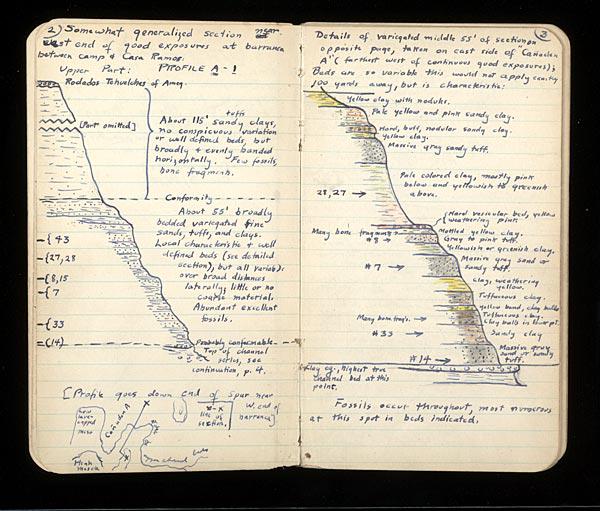 2) Somewhat generalized section near
east end of good exposures at barranca
between camp & Casa Ramos:
Upper Part: PROFILE A-1
Rodados Tehuelches of Amegh.
[Part omitted]
About 115' tuffs
sandy clays,
no conspicuous variation
or well defined beds, but
broadly & evenly banded
horizontally. Few fossils,
bone fragments.
Conformity
About 55' broadly
bedded variegated fine
sands, tuffs, and clays.
Local characteristic & well
defined beds (see detailed
section), but all variable
over broad distances
laterally, little or no
coarse material.
Abundant excellent
fossils.
{43
{27,28
{8,15
{7
{33
{(14)
Probably conformable.
Top of channel
series, see
continuation, p. 4.
[Profile goes down end of spur near
W. end of
barranca]
x-x
line of
section.
Cañadon A
High
3
Details of variegated middle 55' of section on
opposite page, taken on east side of "Cañadon
A" (farthest west of continuous good exposures);
Beds are so variable this would not apply exactly
100 yards away, but is characteristic:
Yellow clay with nodules.
Pale yellow and pink sandy clay.
Hard, buff, nodular sandy clay.
Yellow clay.
Massive gray sandy tuff.
Pale colored clay, mostly pink
below and yellowish to greenish
above.
28,27 →
{Hard vesicular bed, yellow
weathering pink.
Many bone fragments
#8 →
Mottled yellow clay.
Gray to pink tuff.
Yellowish or greenish clay.
Massive gray sand or
sandy tuff.
#7 →
Clay, weathering
yellow.
Tuffaceous clay.
Yellow band, clay balls
Tuffaceous clay.
Clay balls in lower pt.
Many bone frags. →
#33 →
Sandy clay
Massive gray
sand or sandy
tuff.
#14 →
Clay cg., highest true
channel bed at this
point.
Fossils occur throughout, most numerous
at this spot in beds indicated.